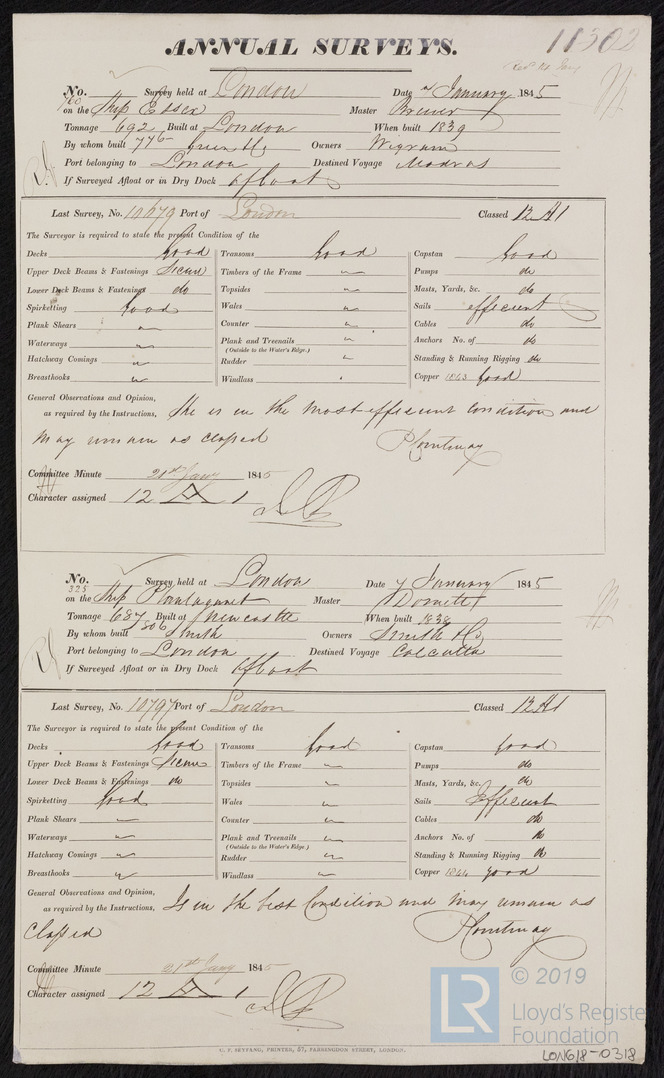 ANNUAL SURVEYS.
11302
No. 760 Survey held at London Date 7 January 1845
on the Ship Essex Master Brewer
Tonnage 692 Built at London When built 1839
By whom built 776 Green & Co Owners Wigram
Port belonging to London Destined Voyage Madras
If Surveyed Afloat or in Dry Dock Afloat
Last Survey, No. 10679 Port of London Classed 12 A1
The Surveyor is required to state the present Condition of the
Decks good Transoms good Capstan good
Upper Deck Beams & Fastenings Secure Timbers of the Frame " Pumps do
Lower Deck Beams & Fastenings do Topsides " Masts, Yards, &c. do
Spirketting good Wales " Sails efficient
Plank Shears " Counter " Cables do
Waterways " Plank and Treenails " Anchors No. of do
(Outside to the Water's Edge.)
Hatchway Comings " Rudder " Standing & Running Rigging do
Breasthooks " Windlass " Copper 1843 good
General Observations and Opinion,
as required by the Instructions, She is in the most efficient condition and
may remain as classed
P Courtenay
Committee Minute 21st Jany 1845
Character assigned 12 A 1
No. 325 Survey held at London Date 7 January 1845
on the Ship Plantagenet Master Domett
Tonnage 687 Built at Newcastle When built 1838
By whom built 806 Smith Owners Smith & Co
Port belonging to London Destined Voyage Calcutta
If Surveyed Afloat or in Dry Dock Afloat
Last Survey, No. 10797 Port of London Classed 12 A1
The Surveyor is required to state the present Condition of the
Decks good Transoms good Capstan good
Upper Deck Beams & Fastenings Secure Timbers of the Frame " Pumps do
Lower Deck Beams & Fastenings do Topsides " Masts, Yards, &c. do
Spirketting good Wales " Sails Efficient
Plank Shears " Counter " Cables do
Waterways " Plank and Treenails " Anchors No. of do
(Outside to the Water's Edge.)
Hatchway Comings " Rudder " Standing & Running Rigging do
Breasthooks " Windlass " Copper 1844 good
General Observations and Opinion,
as required by the Instructions, Is in the best Condition and may remain as
classed
P Courtenay
Committee Minute 21st Jany 1845
Character assigned 12 A 1
C. F. SEYFANG, PRINTER, 57, FARRINGDON STREET, LONDON.
LR © 2019
Lloyd's Register
Foundation
LON618-0318